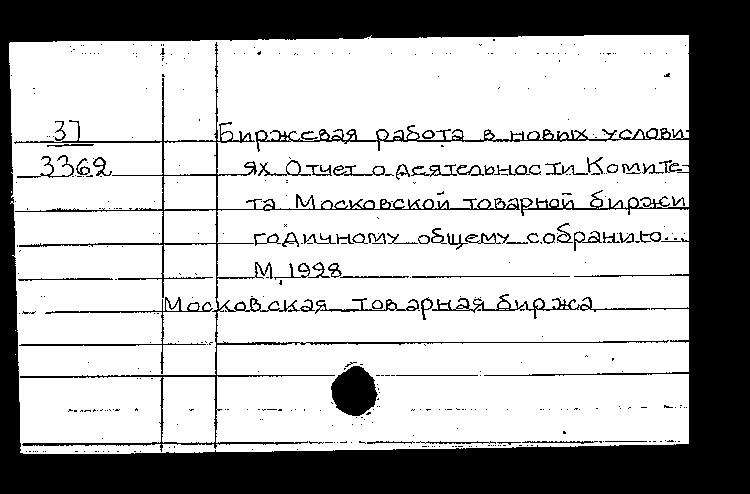 37
3362
Биржевая работа в новых услови-
ях. Отчет о деятельности Комите-
та Московской товарной биржи
годичному общему собранию...
М, 1928
Московская товарная биржа